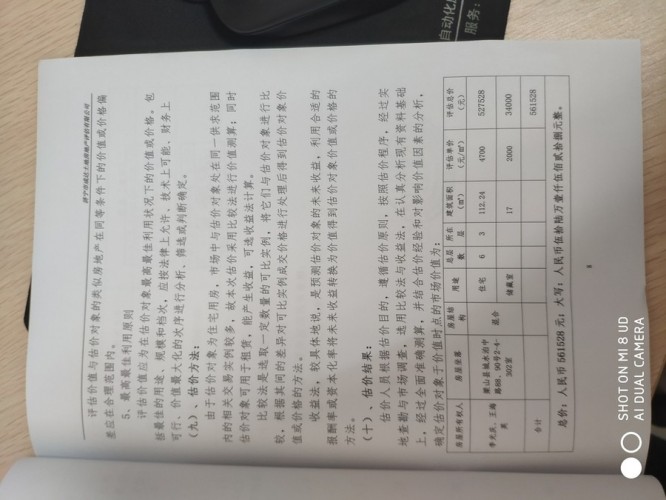 评估价值与估价对象的类似房地产在同等条件下的价值或价格偏
差应在合理范围内。
5、最高最佳利用原则
评估价值应为在估价对象最高最佳利用状况下的价值或价格。包
括最佳的用途、规模和档次，应按法律上允许、技术上可能、财务上
可行、价值最大化的次序进行分析、筛选或判断确定。
（九）、估价方法：
由于估价对象为住宅用房，市场中与估价对象处在同一供求范围
内的相关交易实例较多，故本次估价采用比较法进行价值测算；同时
估价对象可用于租赁，能产生收益，可选收益法计算。
比较法是选取一定数量的可比实例，将它们与估价对象进行比
较，根据其间的差异对可比实例成交价格进行处理后得到估价对象价
值或价格的方法。
收益法，较具体地说，是预测估价对象的未来收益，利用合适的
报酬率或资本化率将未来收益转换为价值得到估价对象价值或价格的
方法。
（十）、估价结果：
估价人员根据估价目的，遵循估价原则，按照估价程序，经过实
地查勘与市场调查，选用比较法与收益法，在认真分析现有资料基础
上，经过全面准确测算，并结合估价经验和对影响价值因素的分析，
确定估价对象于价值时点的市场价值为：
房屋所有权人 房屋坐落 房屋结构 用途 总层数 所在层 建筑面积（㎡） 评估单价（元/㎡） 评估总价（元）
混合 住宅 6 3 112.24 4700 527528
储藏室 17 2000 34000
合计 561528
总价：人民币 561528 元；大写：人民币伍拾陆万壹仟伍佰贰拾捌元整。
自动化
服务：
SHOT ON MI 8 UD
AI DUAL CAMERA